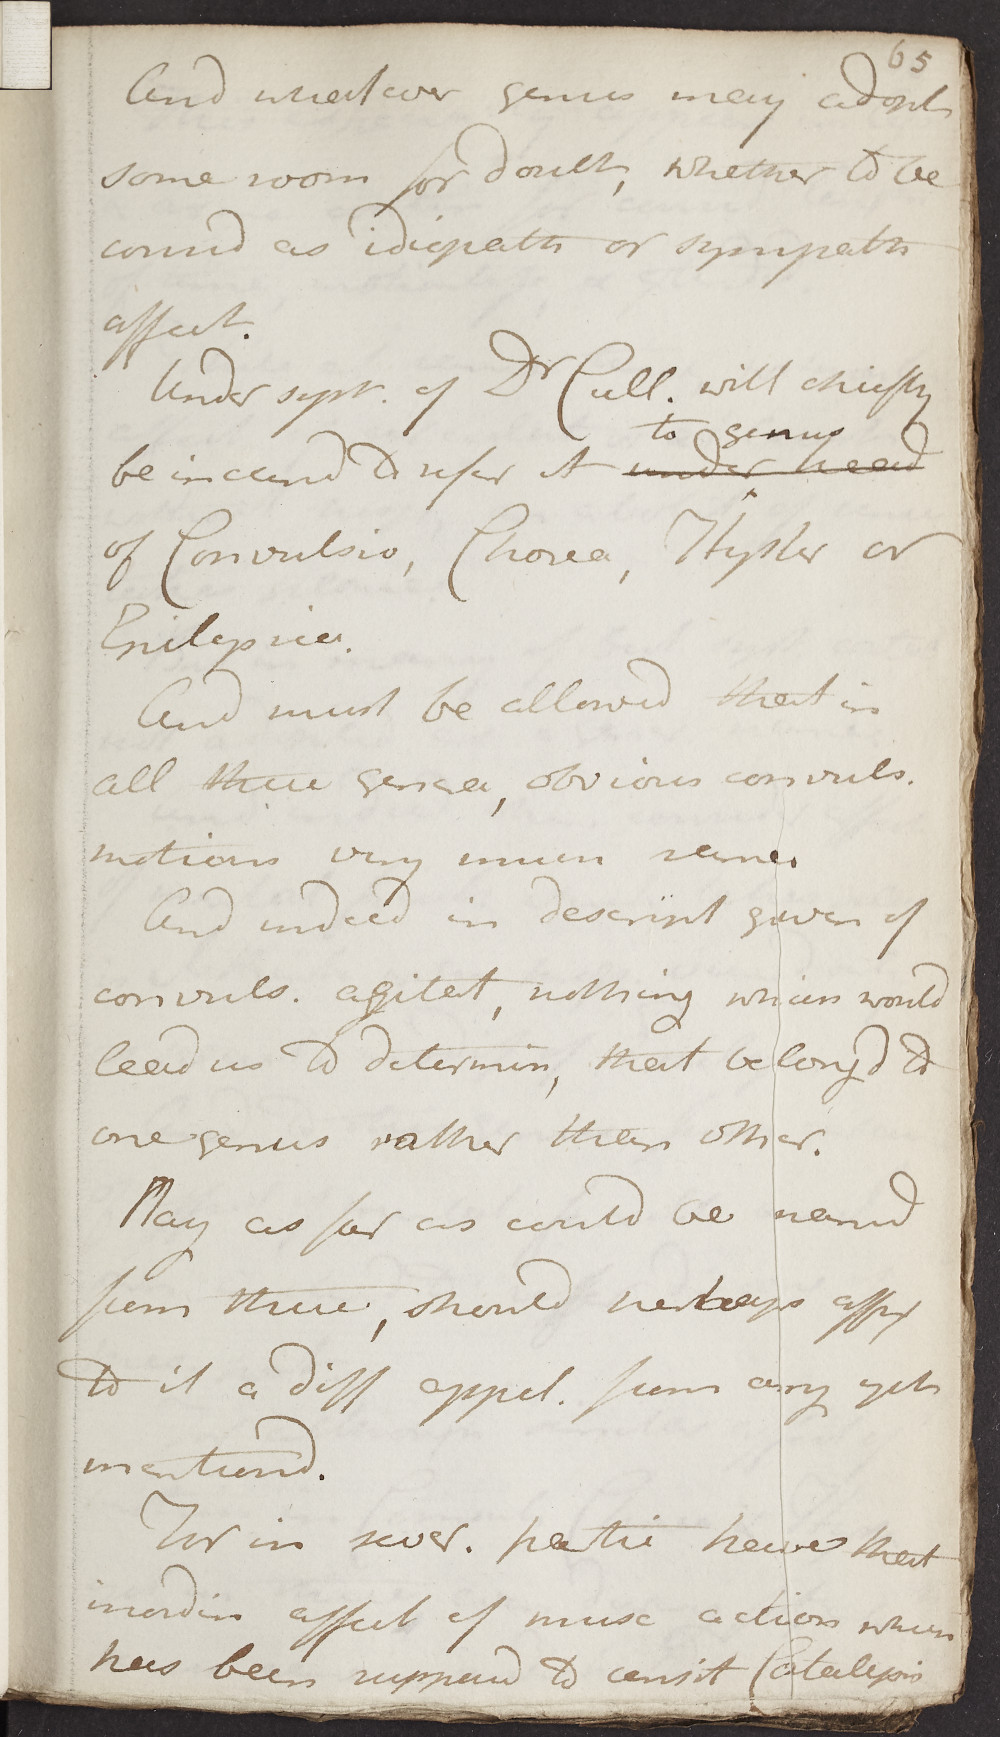 65
And whatever genus may adopt
some room for doubt, whether to be
consid as idiopath or sympath
affect.
Under syst. of Dr Cull. will chiefly
to genus
be inclind to refer it under head
of Convulsio, Chorea, Hyster or
Epilepsia.
And must be allowed that in
all these genera, obvious convuls.
motions very much same
And indeed in descript given of
convuls. agitat, nothing which would
lead us to determin, that belong'd to
one genus rather than other.
Nay as far as could be
from these, should perhaps affix
to it a diff appel. from any yet
mentiond.
For in sever. partic have that
inordin affect of musc action which
has been supposd to consit Catalepsis